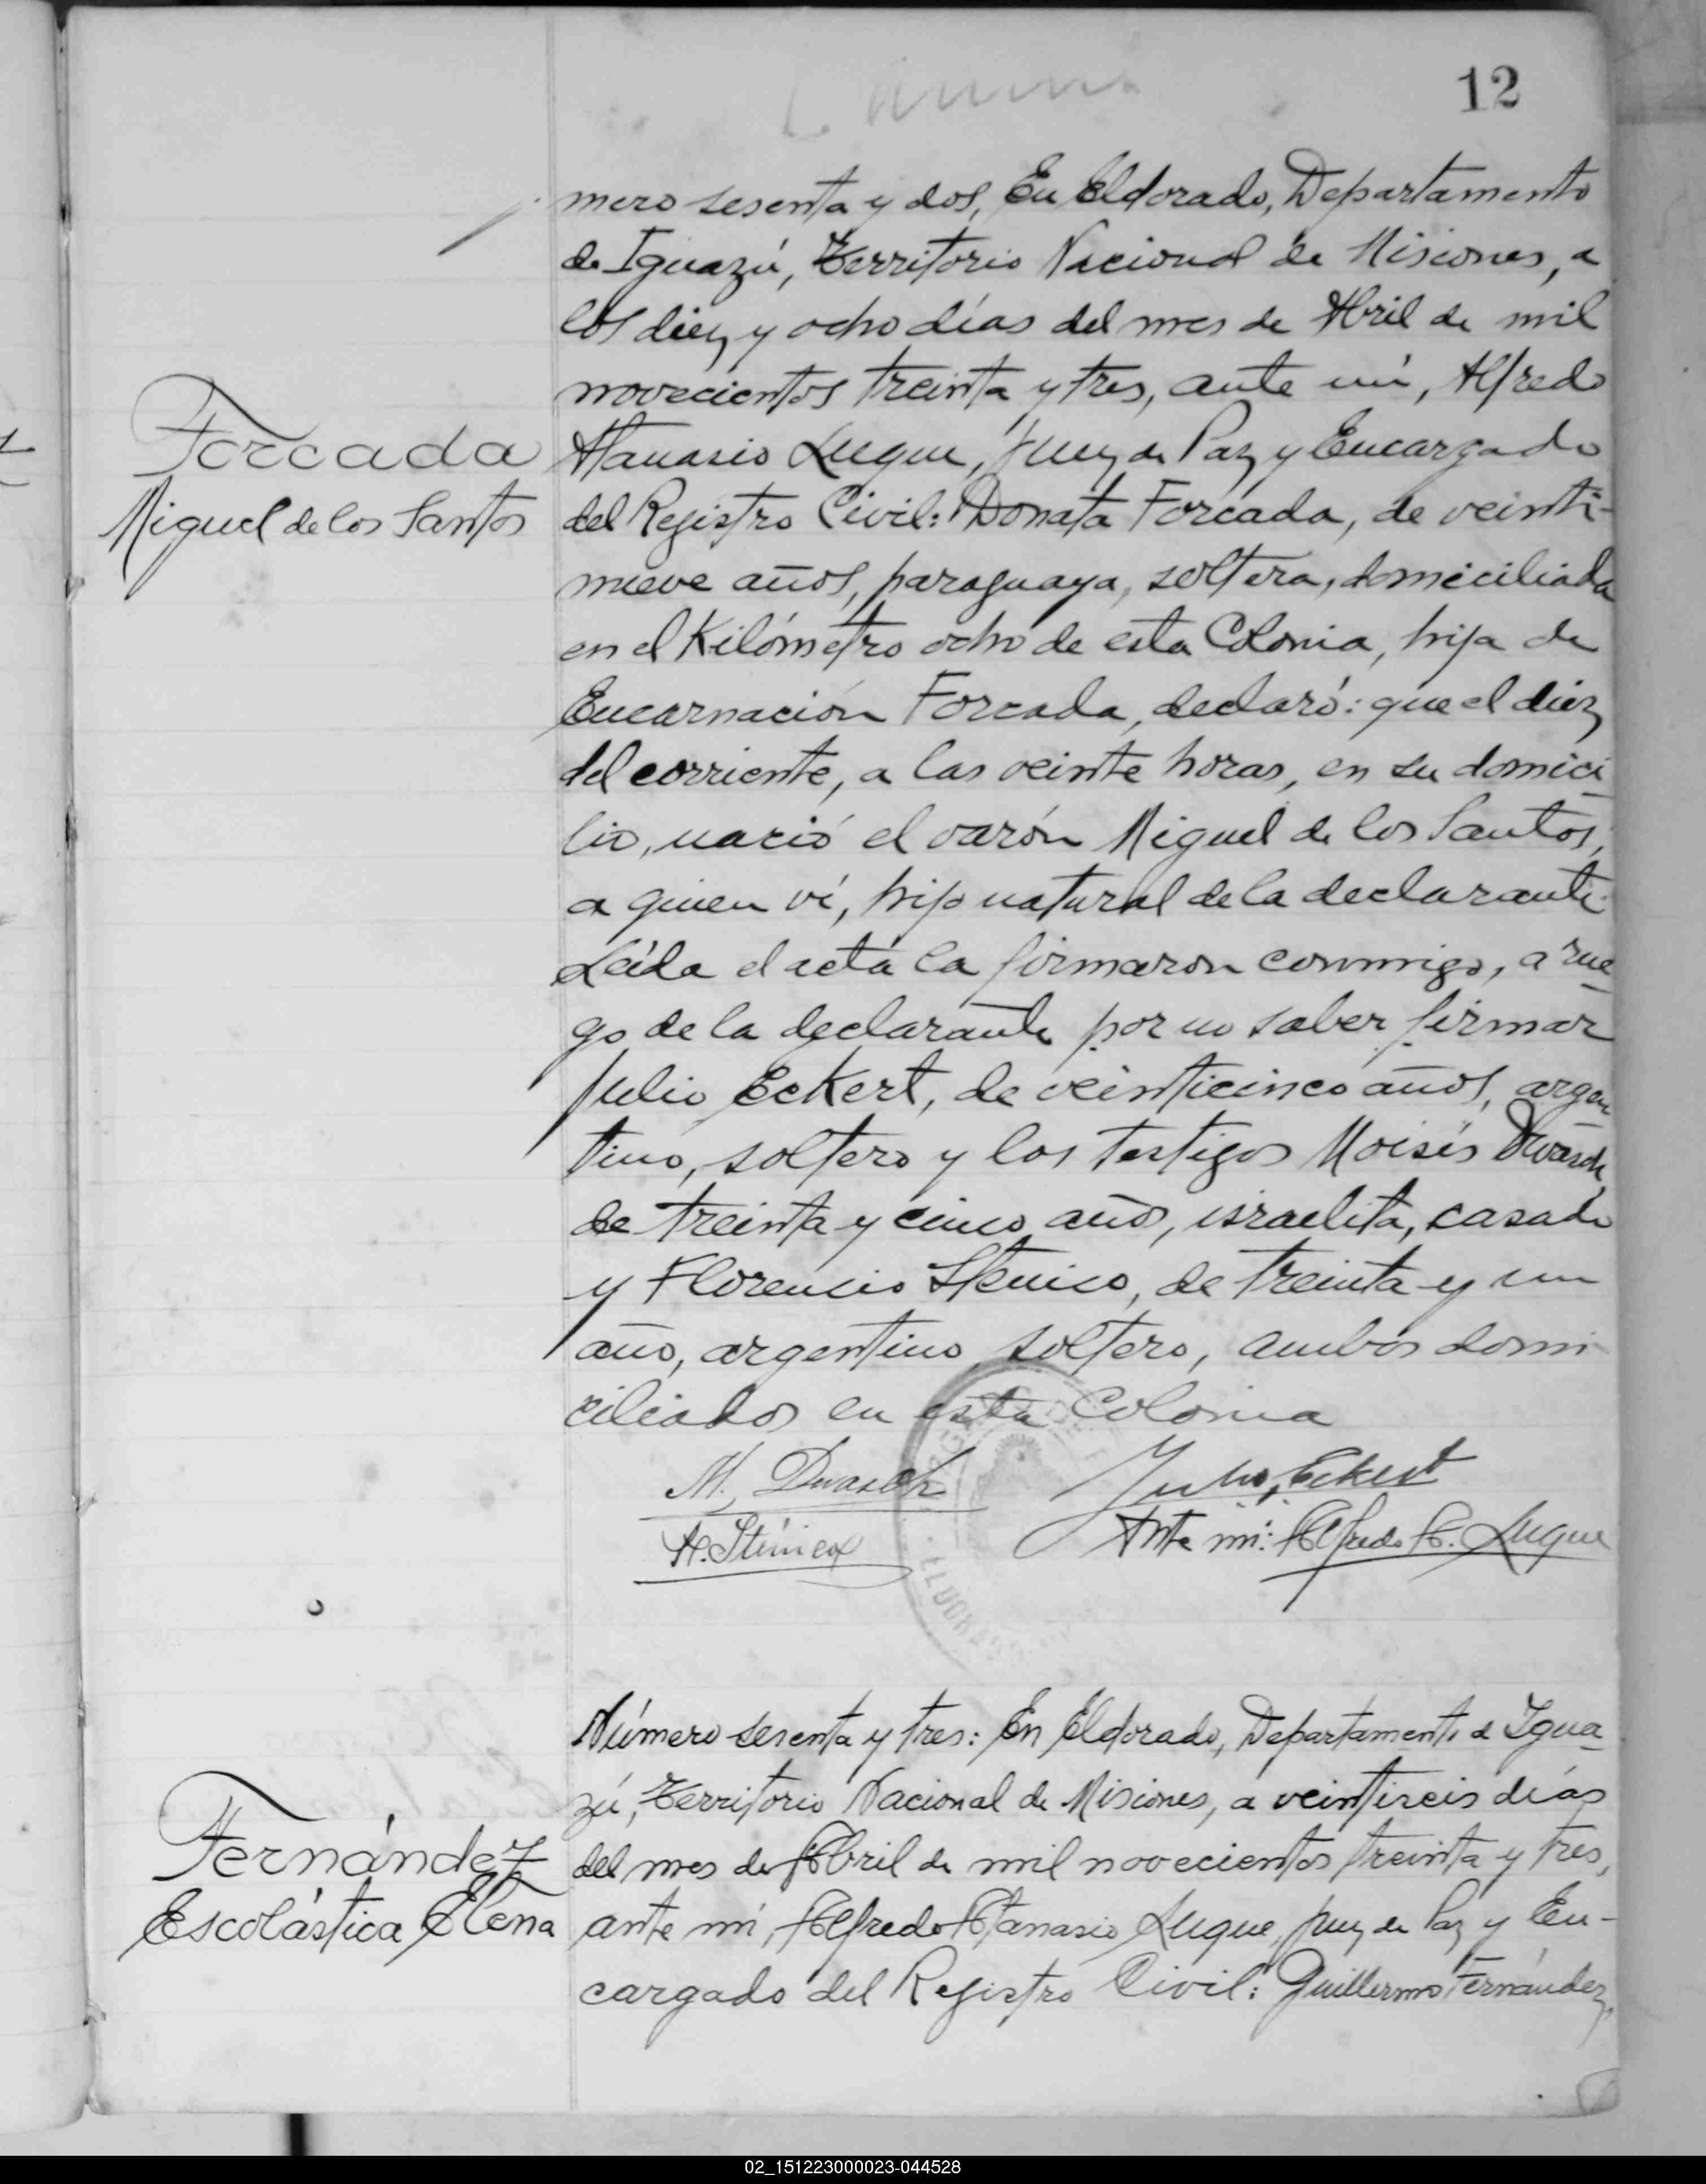 12
mero sesenta y dos, En Eldorado, Departamento
de Iguazú, Territorio Nacional de Misiones, a
los diez y ocho días del mes de Abril de mil
novecientos treinta y tres, ante mí, Alfredo
Forcada
Atanasio Luque, Juez de Paz y Encargado
Miguel de los Santos
del Registro Civil: Donata Forcada, de veinti-
nueve años, paraguaya, soltera, domiciliada
en el Kilómetro ocho de esta Colonia, hija de
Encarnación Forcada, declaró: que el diez
del corriente, a las veinte horas, en su domici
lio, nació el varón Miguel de los Santos,
a quien ví, hijo natural de la declarante.
Leída el acta la firmaron conmigo, a rue
go de la declarante por no saber firmar
Julio Eckert, de veinticinco años, argen
tino, soltero y los testigos Moisés Dwasch,
de treinta y cinco años, israelita, casado
y Florencio Stenico, de treinta y un
año, argentino, soltero, ambos domi
ciliados en esta Colonia
M. Dwasch
Julio Eckert
Ante mí: Alfredo A. Luque
Número sesenta y tres: En Eldorado, Departamento de Igua
zú, Territorio Nacional de Misiones, a veintiseis días
Fernández
del mes de Abril de mil novecientos treinta y tres,
Escolástica Elena
ante mí, Alfredo Atanasio Luque, Juez de Paz y En-
cargado del Registro Civil: Guillermo Fernández,
02_151223000023-044528